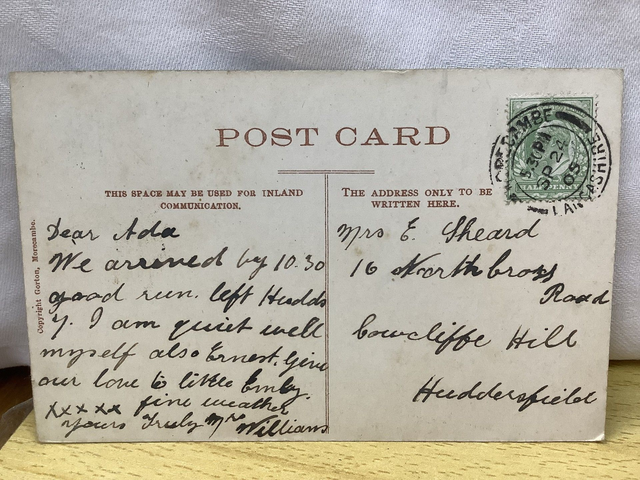 POST CARD
THIS SPACE MAY BE USED FOR INLAND
COMMUNICATION.
THE ADDRESS ONLY TO BE
WRITTEN HERE.
Copyright Gorton, Morecambe.
MORECAMBE
5.30PM
SP 24
03
LANCASHIRE
HALFPENNY
Dear Ada
We arrived by 10.30
good run. left Hudds
7. I am quiet well
myself also Ernest. Give
our love to little Emly.
xxxxx fine weather
Yours Truly Mrs Williams
Mrs E. Sheard
16 Northbrook
Road
Cowcliffe Hill
Huddersfield